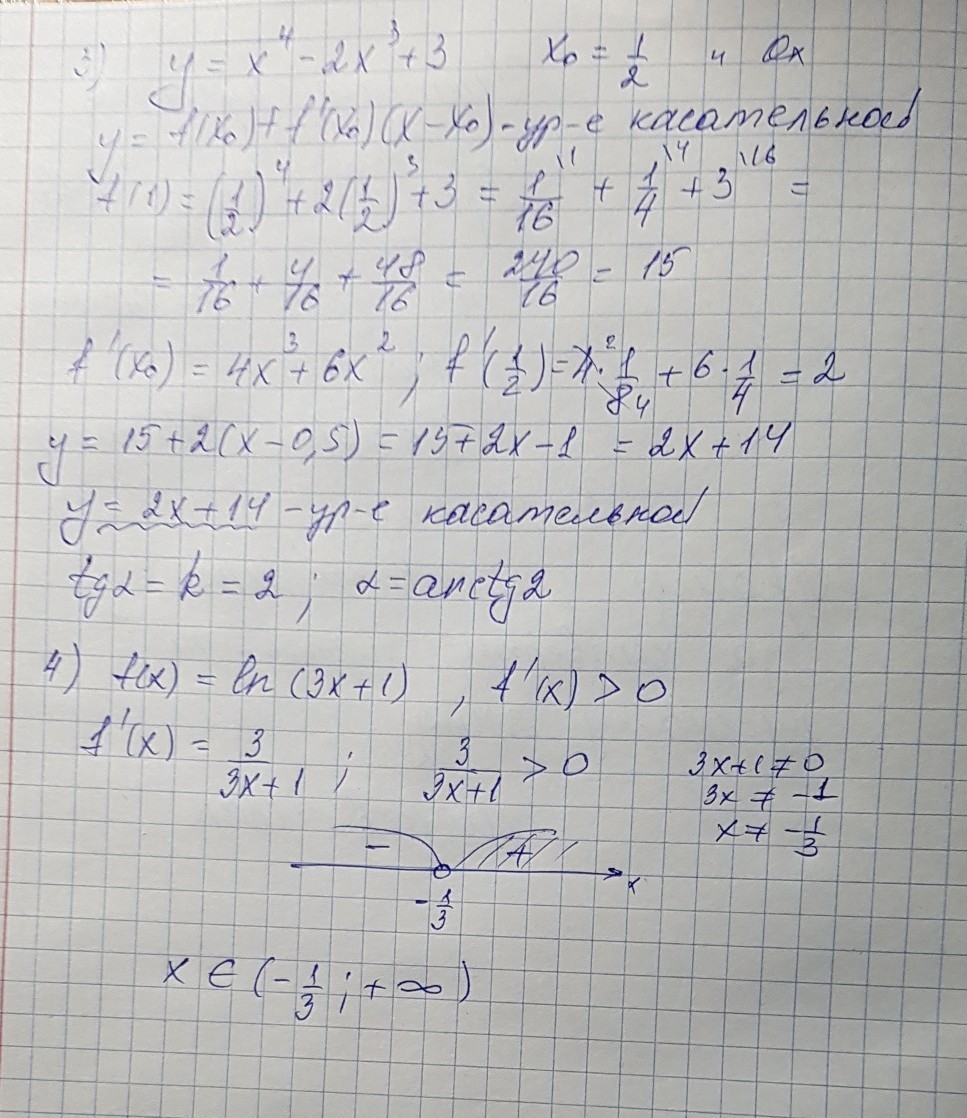 3) y = x⁴ - 2x³ + 3 x₀ = 1/2 и Ox
y = f(x₀) + f'(x₀)(x - x₀) - ур-е касательной
f(1) = (1/2)⁴ + 2(1/2)³ + 3 = 1/16 \1 + 1/4 \4 + 3 \16 =
= 1/16 + 4/16 + 48/16 = 240/16 = 15
f'(x₀) = 4x³ + 6x² ; f'(1/2) = 4 · 1/8 + 6 · 1/4 = 2
y = 15 + 2(x - 0,5) = 15 + 2x - 1 = 2x + 14
y = 2x + 14 - ур-е касательной
tgα = k = 2 ; α = arctg2
4) f(x) = ln (3x+1) , f'(x) > 0
f'(x) = 3/(3x+1) ; 3/(3x+1) > 0
3x+1 ≠ 0
3x ≠ -1
x ≠ -1/3
- +
x
-1/3
x ∈ (-1/3 ; +∞)